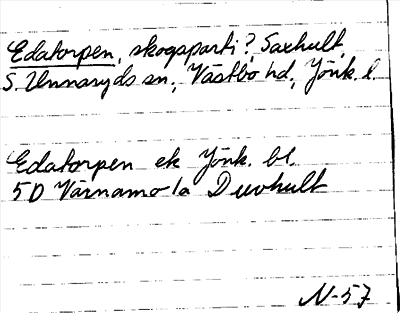 Edatorpen, skogsparti i Saxhult,
S. Unnaryds sn., Västbo hd, Jönk. l
Edatorpen ek Jönk. bl.
5D Värnamo 1a Duvhult
N-57